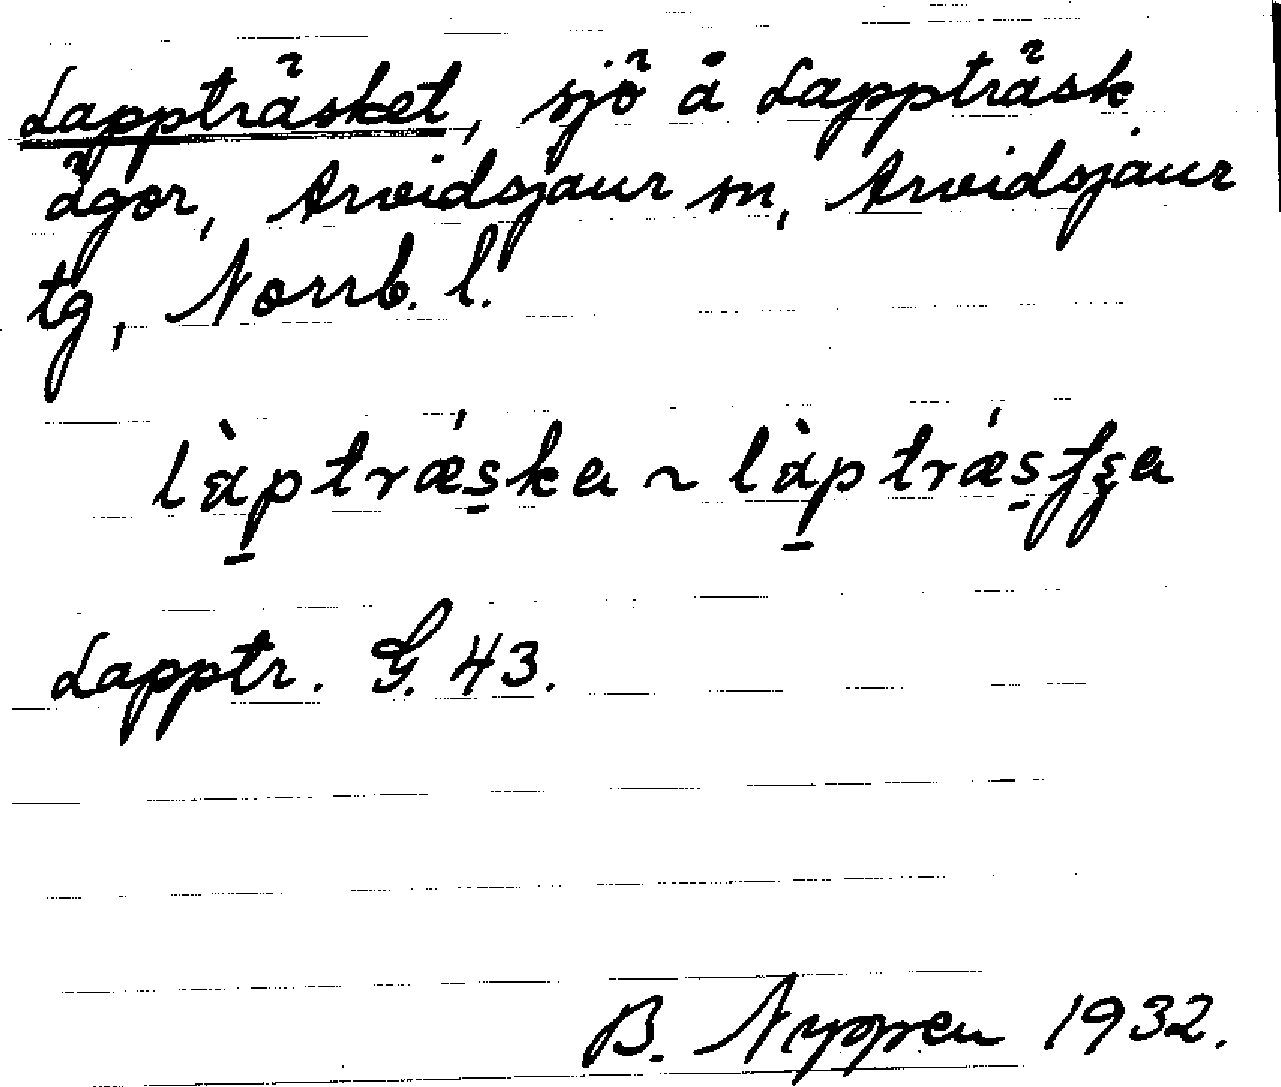 Lappträsket, sjö å Lappträsk
ägor, Arvidsjaur sn, Arvidsjaur
tg, Norrb. l.
làptrǽska ~ làptrǽsʃʒa
Lapptr. G. 43.
B. Nyppen 1932.